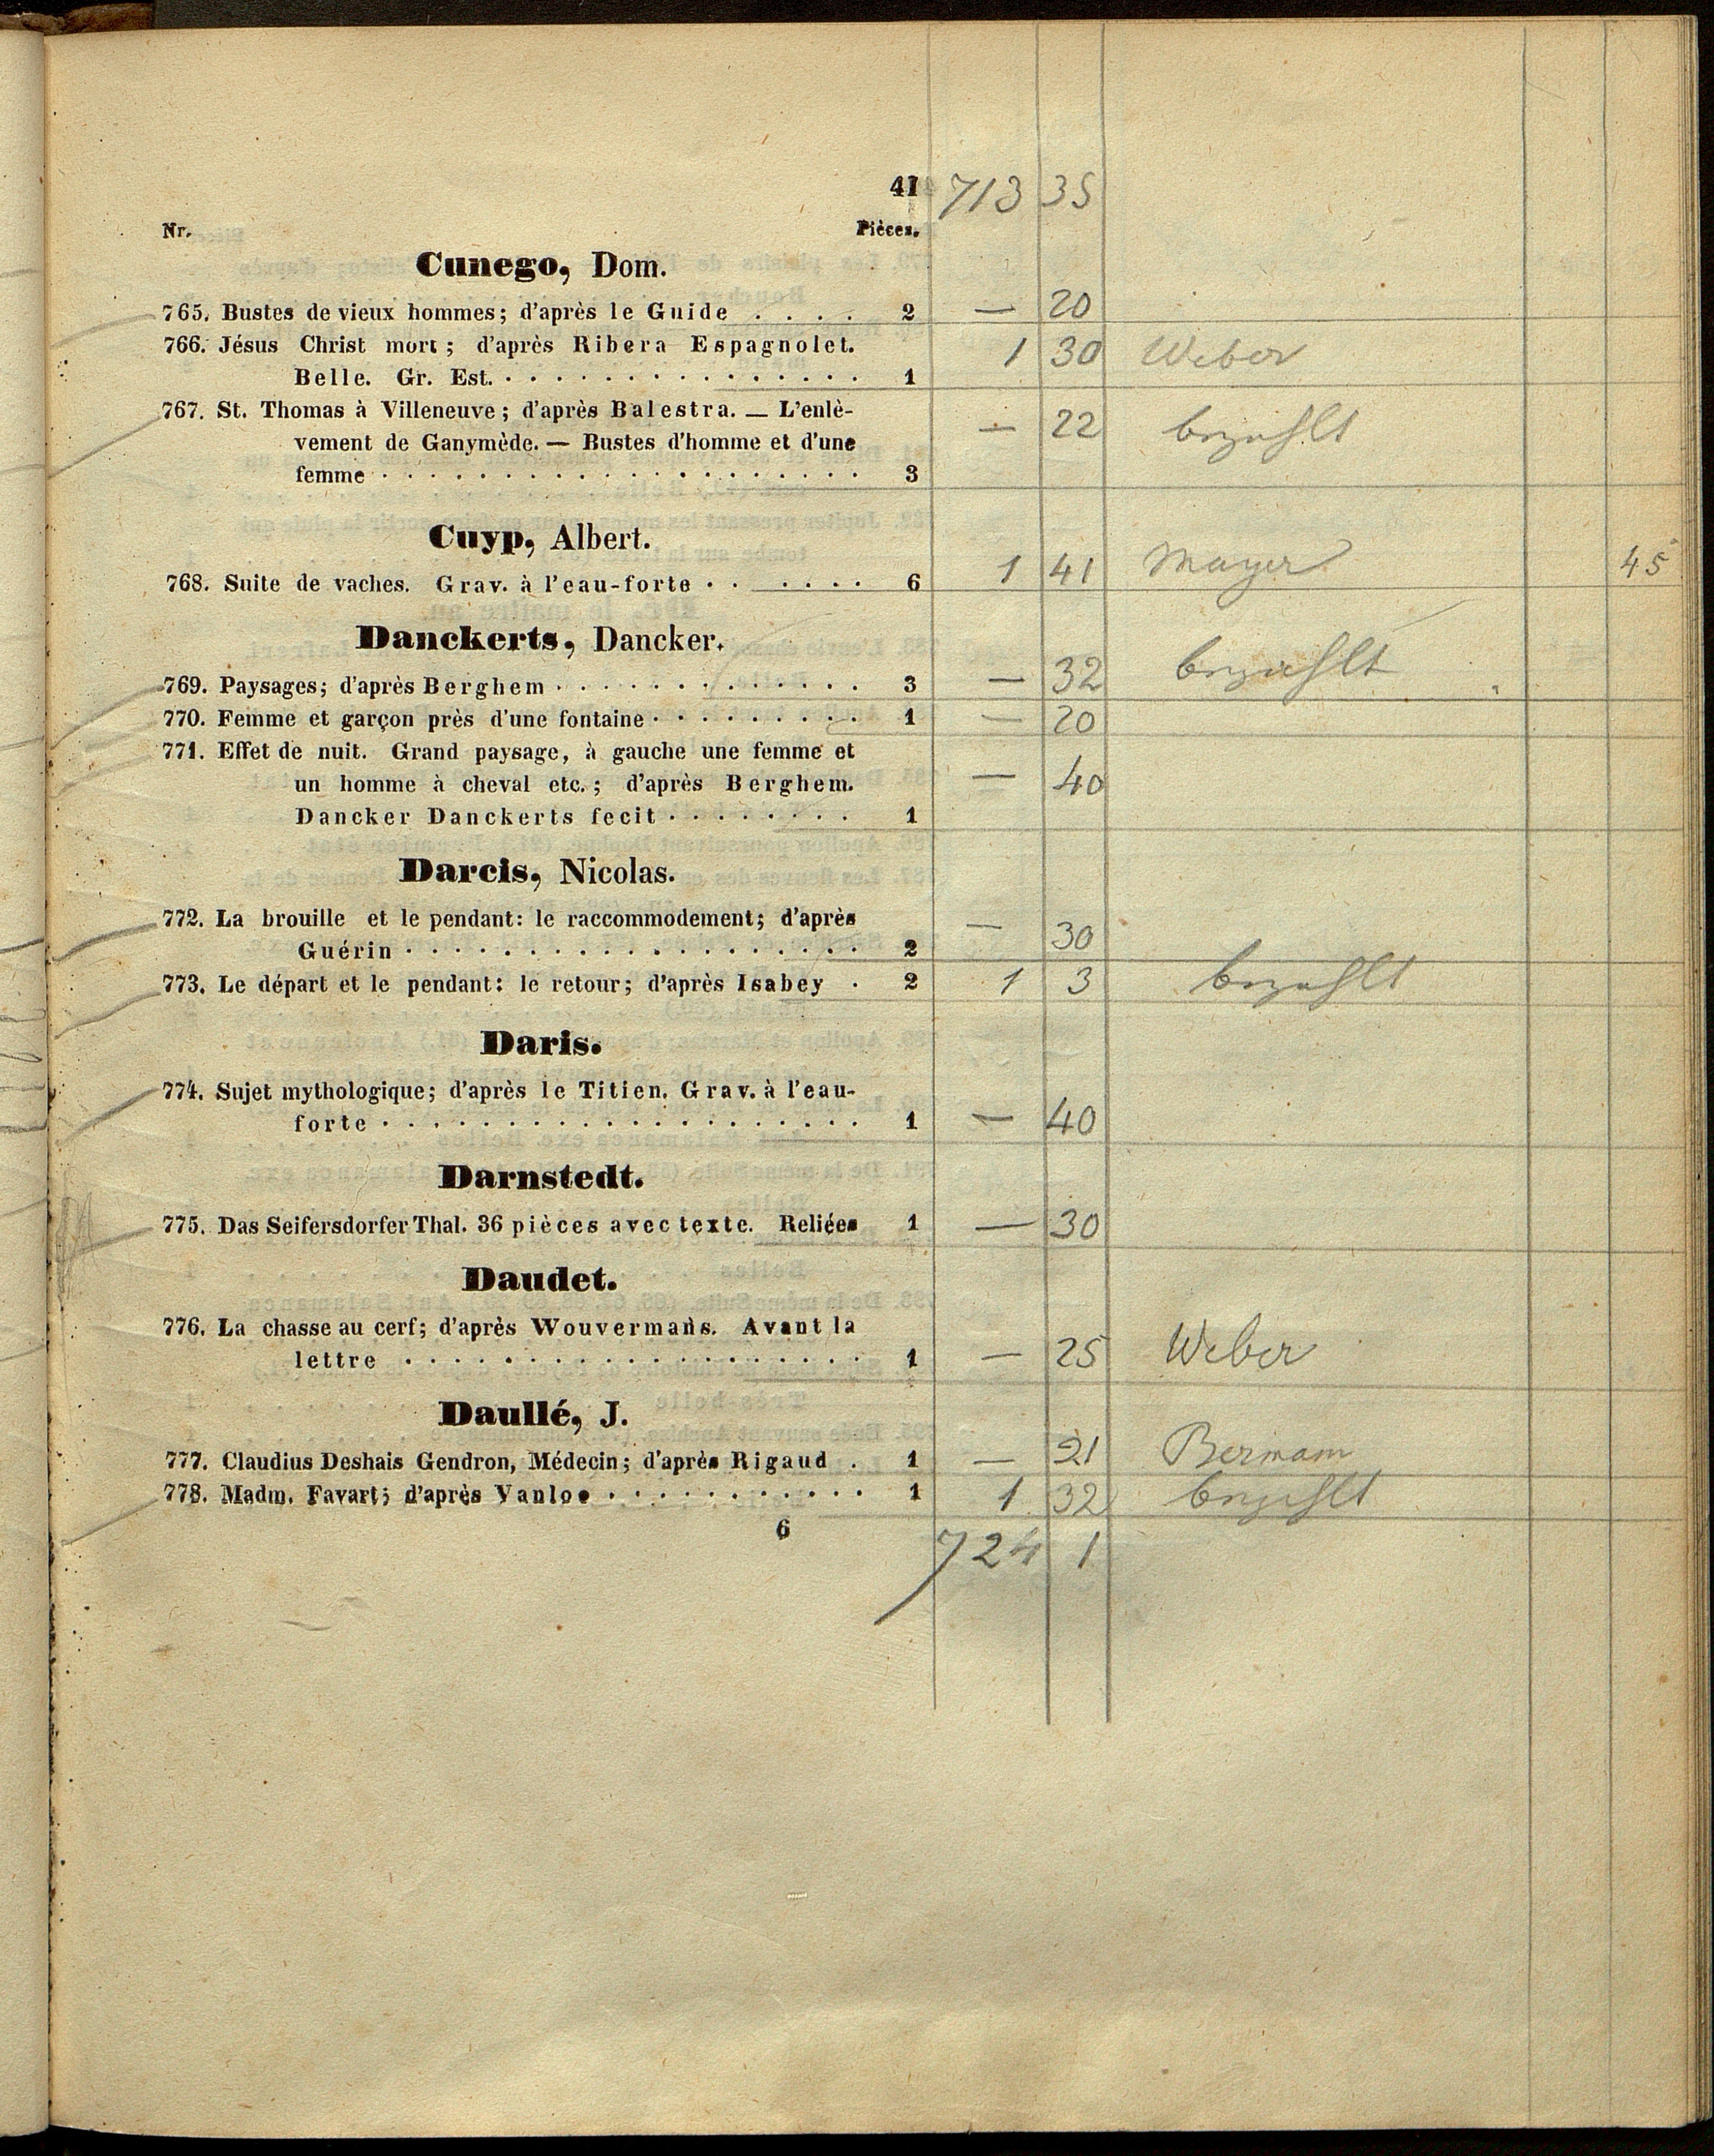 41 713 35
Nr. Pièces.
Cunego, Dom.
765. Bustes de vieux hommes; d'après le Guide . . . . 2 — 20
766. Jésus Christ mort; d'après Ribera Espagnolet. 1 30 Weber
Belle. Gr. Est. . . . . . . . . . . . . . . . 1
767. St. Thomas à Villeneuve; d'après Balestra. — L'enlè-
vement de Ganymède. — Bustes d'homme et d'une — 22 bezahlt
femme . . . . . . . . . . . . . . . . . . . . 3
Cuyp, Albert.
768. Suite de vaches. Grav. à l'eau-forte . . . . . . 6 1 41 Mayer 45
Danckerts, Dancker.
769. Paysages; d'après Berghem . . . . . . . . . . . . . 3 — 32 bezahlt
770. Femme et garçon près d'une fontaine . . . . . . . . . 1 — 20
771. Effet de nuit. Grand paysage, à gauche une femme et
un homme à cheval etc.; d'après Berghem. — 40
Dancker Danckerts fecit . . . . . . . . 1
Darcis, Nicolas.
772. La brouille et le pendant: le raccommodement; d'après
Guérin . . . . . . . . . . . . . . . . . . . 2 — 30
773. Le départ et le pendant: le retour; d'après Isabey . 2 1 3 bezahlt
Daris.
774. Sujet mythologique; d'après le Titien. Grav. à l'eau-
forte . . . . . . . . . . . . . . . . . . . . 1 — 40
Darnstedt.
775. Das Seifersdorfer Thal. 36 pièces avec texte. Reliées 1 — 30
Daudet.
776. La chasse au cerf; d'après Wouvermans. Avant la
lettre . . . . . . . . . . . . . . . . . . . 1 — 25 Weber
Daullé, J.
777. Claudius Deshais Gendron, Médecin; d'après Rigaud . 1 — 21 Bermann
778. Madm. Favart; d'après Vanloo . . . . . . . . . . . 1 1 32 bezahlt
6
724 1